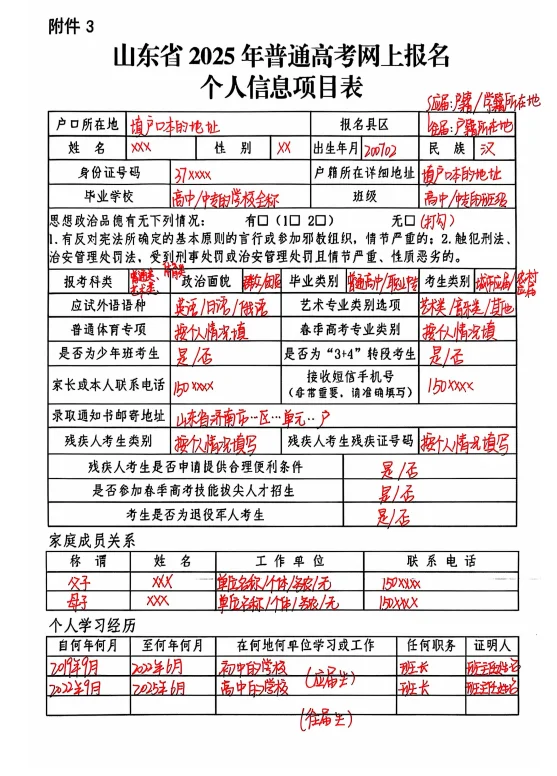 附件 3
山东省 2025 年普通高考网上报名
个人信息项目表
应届:户籍/学籍所在地
户口所在地 填户口本的地址 报名县区 往届:户籍所在地
姓 名 XXX 性 别 XX 出生年月 200702 民 族 汉
身份证号码 37xxxx 户籍所在详细地址 填户口本的地址
毕业学校 高中/中专的学校全称 班级 高中/中专的班级
思想政治品德有无下列情况: 有□(1□ 2□) 无□ (打勾)
1.有反对宪法所确定的基本原则的言行或参加邪教组织,情节严重的;2.触犯刑法、
治安管理处罚法,受到刑事处罚或治安管理处罚且情节严重、性质恶劣的。
报考科类 普通类、体育类 艺术类 政治面貌 群众/团员 毕业类别 普通高中/职业中专 考生类别 城市应届/农村
应试外语语种 英语/日语/俄语 艺术专业类别选项 艺术类/音乐类/其他
普通体育专项 按个人情况填 春季高考专业类别 按个人情况填
是否为少年班考生 是/否 是否为“3+4”转段考生 是/否
家长或本人联系电话 150xxxx 接收短信手机号 150xxxx
(非常重要,请准确填写)
录取通知书邮寄地址 山东省济南市…区…单元..户
残疾人考生类别 按个人情况填写 残疾人考生残疾证号码 按个人情况填写
残疾人考生是否申请提供合理便利条件 是/否
是否参加春季高考技能拔尖人才招生 是/否
考生是否为退役军人考生 是/否
家庭成员关系
称 谓 姓 名 工 作 单 位 联 系 电 话
父子 XXX 单位名称/个体/务农/无 150xxxx
母子 XXX 单位名称/个体/务农/无 150xxxx
个人学习经历
自何年何月 至何年何月 在何地何单位学习或工作 任何职务 证明人
2019年9月 2022年6月 初中的学校 班长 班主任姓名
2022年9月 2025年6月 高中的学校 (应届生) 班长 班主任姓名
(往届生)